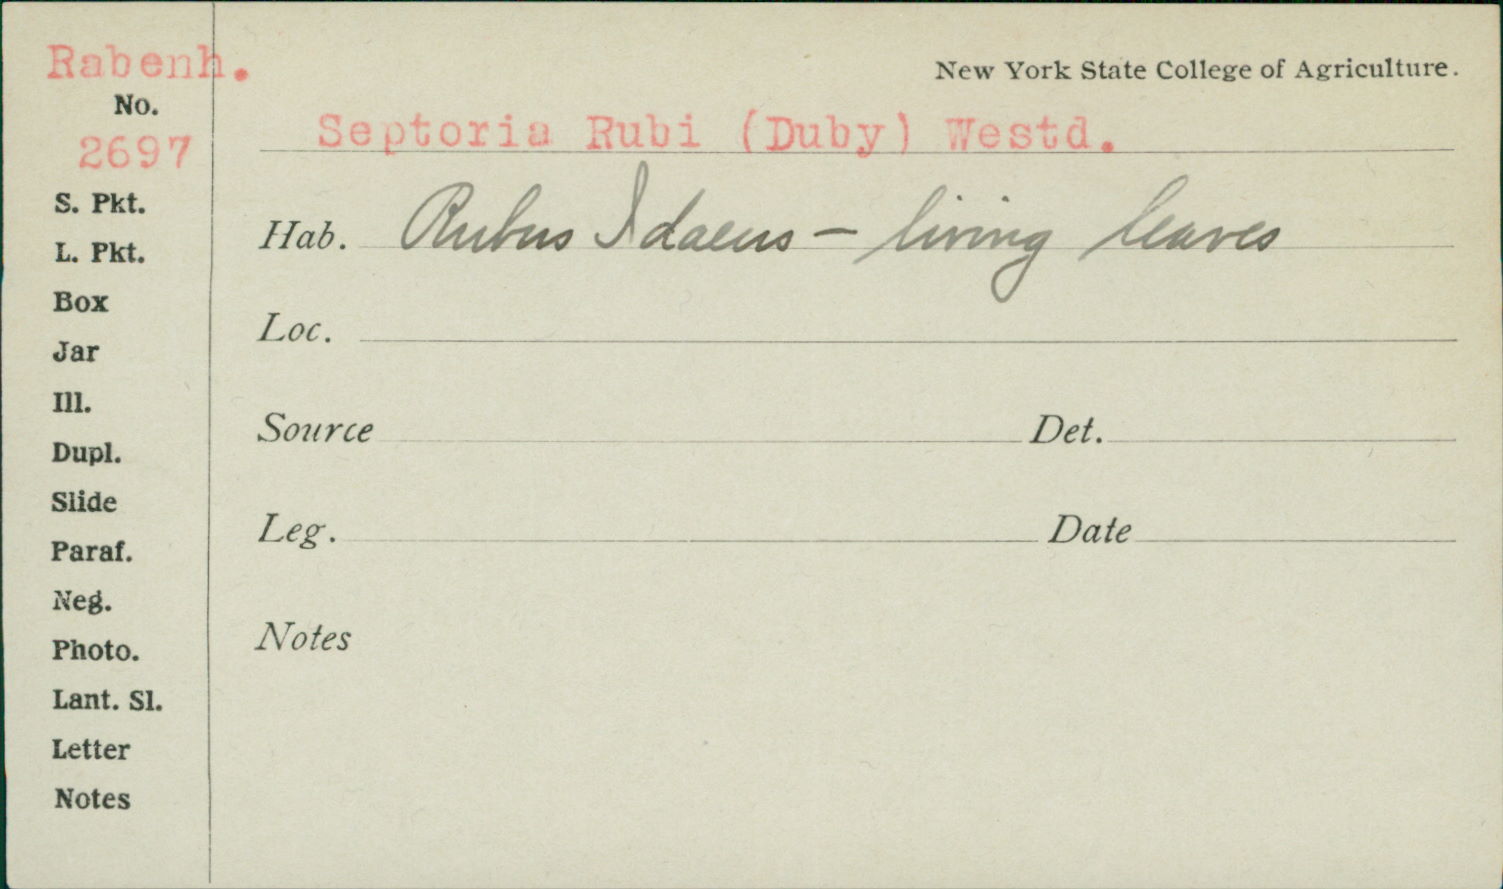 Rabenh.
No.
2697
S. Pkt.
L. Pkt.
Box
Jar
Ill.
Dupl.
Slide
Paraf.
Neg.
Photo.
Lant. Sl.
Letter
Notes
New York State College of Agriculture.
Septoria Rubi (Duby) Westd.
Hab. Rubus Idaeus - living leaves
Loc.
Source Det.
Leg. Date
Notes